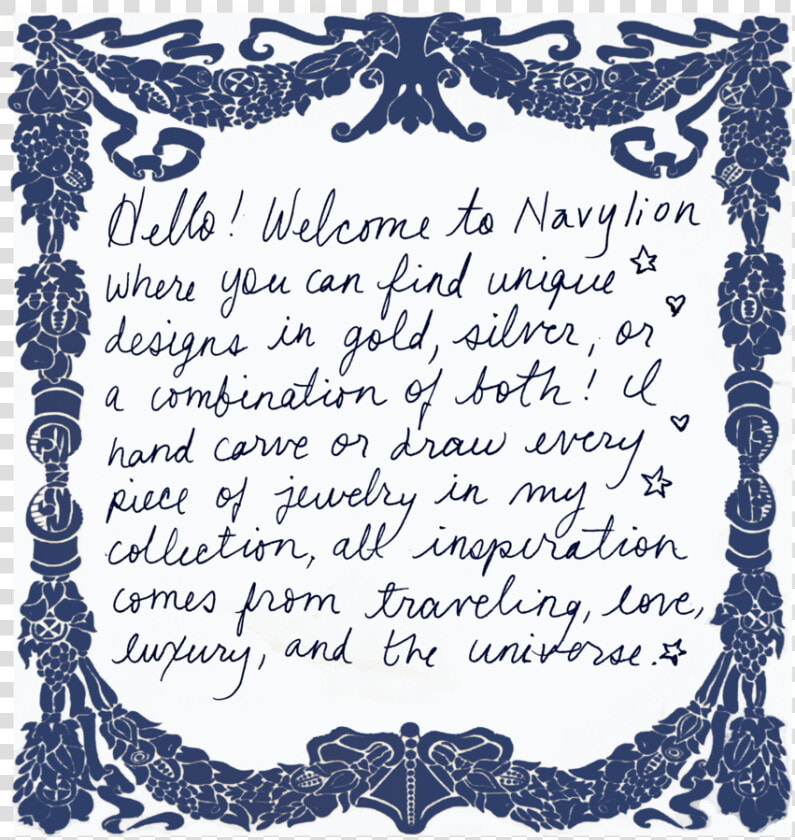 Hello! Welcome to Navylion
where you can find unique
designs in gold, silver, or
a combination of both! I
hand carve or draw every
piece of jewelry in my
collection, all inspiration
comes from traveling, love,
luxury, and the universe.